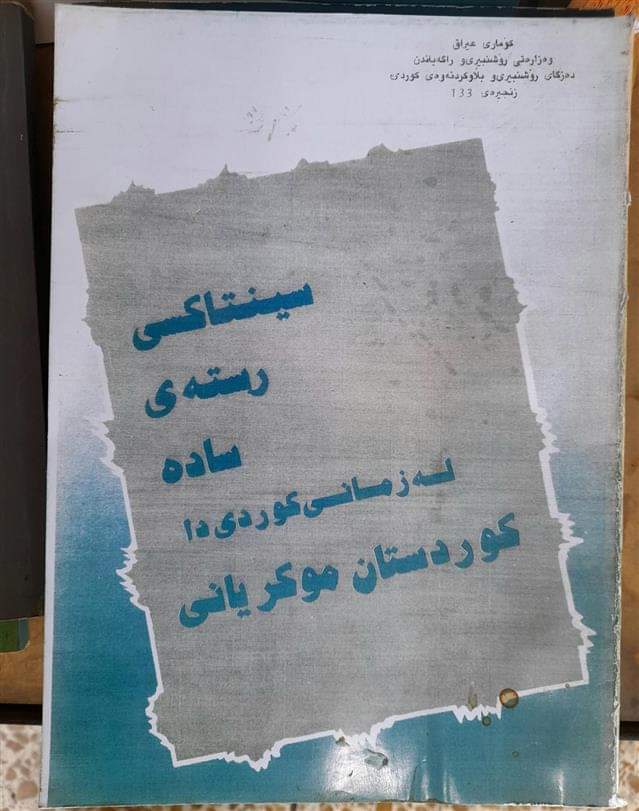 کۆماری عیراق
وەزارەتی رۆشنبیری و راگەیاندن
دەزگای رۆشنبیری و بڵاوکردنەوەی کوردی
زنجیرەی 133
سینتاکسی
رستەی
سادە
لە زمانی کوردی دا
کوردستان موکریانی